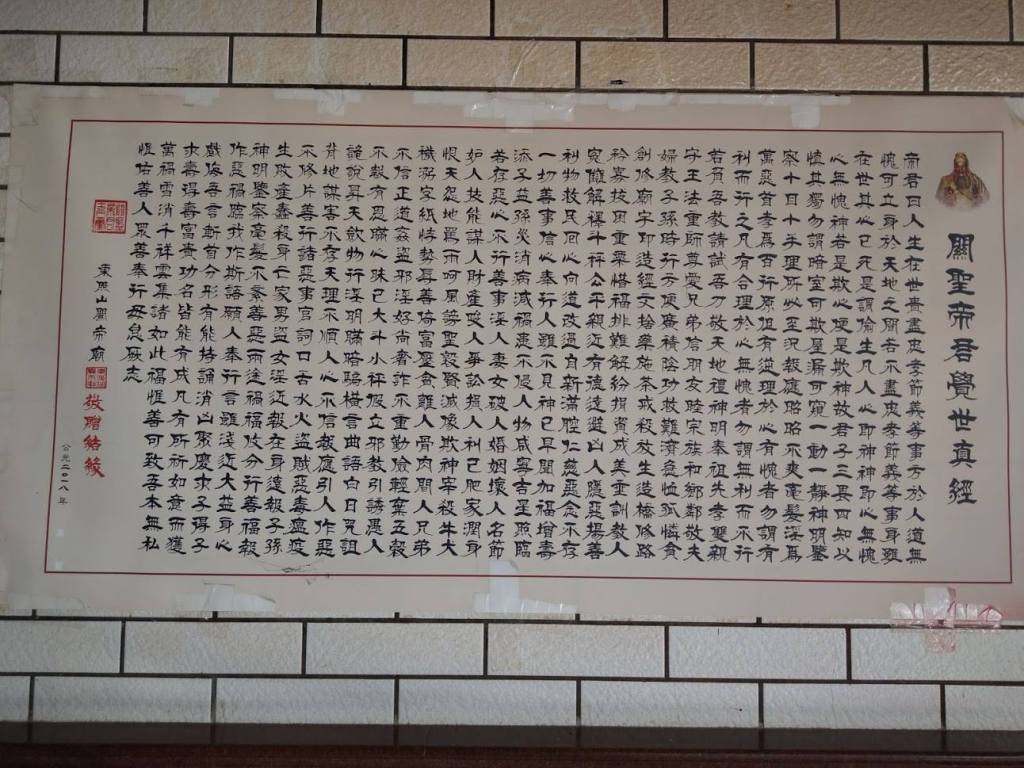 關聖帝君覺世真經
帝君曰人生在世貴盡忠孝節義等事方於人道無
愧可立身於天地之間若不盡忠孝節義等事身雖
在世其心已死是謂偷生凡人心即神神即心無愧
心無愧神若是欺心便是欺神故君子三畏四知以
慎其獨勿謂暗室可欺屋漏可窺一動一靜神明鑒
察十目十手理所必至況報應昭昭不爽毫髮淫為
萬惡首孝為百行原但有逆理於心有愧者勿謂有
利而行之凡有合理於心無愧者勿謂無利而不行
若負吾教請試吾刀敬天地禮神明奉祖先孝雙親
守王法重師尊愛兄弟信朋友睦宗族和鄉鄰敬夫
婦教子孫時行方便廣積陰功救難濟急恤孤憐貧
創修廟宇印造經文捨藥施茶戒殺放生造橋修路
矜寡拔困重粟惜福排難解紛捐貲成美垂訓教人
冤讎解釋斗秤公平親近有德遠避凶人隱惡揚善
利物救民回心向道改過自新滿腔仁慈惡念不存
一切善事信心奉行人雖不見神已早聞加福增壽
添子益孫災消病減禍患不侵人物咸寧吉星照臨
若存惡心不行善事淫人妻女破人婚姻壞人名節
妒人技能謀人財產唆人爭訟損人利己肥家潤身
恨天怨地罵雨呵風謗聖毀賢滅像欺神宰殺牛犬
穢溺字紙恃勢辱善倚富壓貧離人骨肉間人兄弟
不信正道姦盜邪淫好尚奢詐不重勤儉輕棄五穀
不報有恩瞞心昧己大斗小秤假立邪教引誘愚人
詭說昇天斂物行淫明瞞暗騙橫言曲語白日咒詛
背地謀害不存天理不順人心不信報應引人作惡
不修片善行諸惡事官詞口舌水火盜賊惡毒瘟疫
生敗產蠢殺身亡家男盜女淫近報在身遠報子孫
神明鑒察毫髮不紊善惡兩途禍福攸分行善福報
作惡禍臨我作斯語願人奉行言雖淺近大益身心
戲侮吾言斬首分形有能持誦消凶聚慶求子得子
求壽得壽富貴功名皆能有成凡有所祈如意而獲
萬禍雪消千祥雲集諸如此福惟善可致吾本無私
惟佑善人眾善奉行毋怠厥志
東照山關帝廟
敬贈結緣
公元二〇一八年